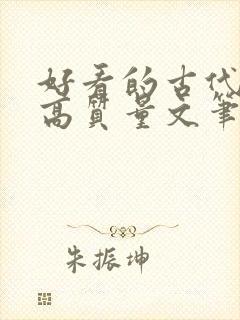 好看的古代
高质量文笔
朱振坤